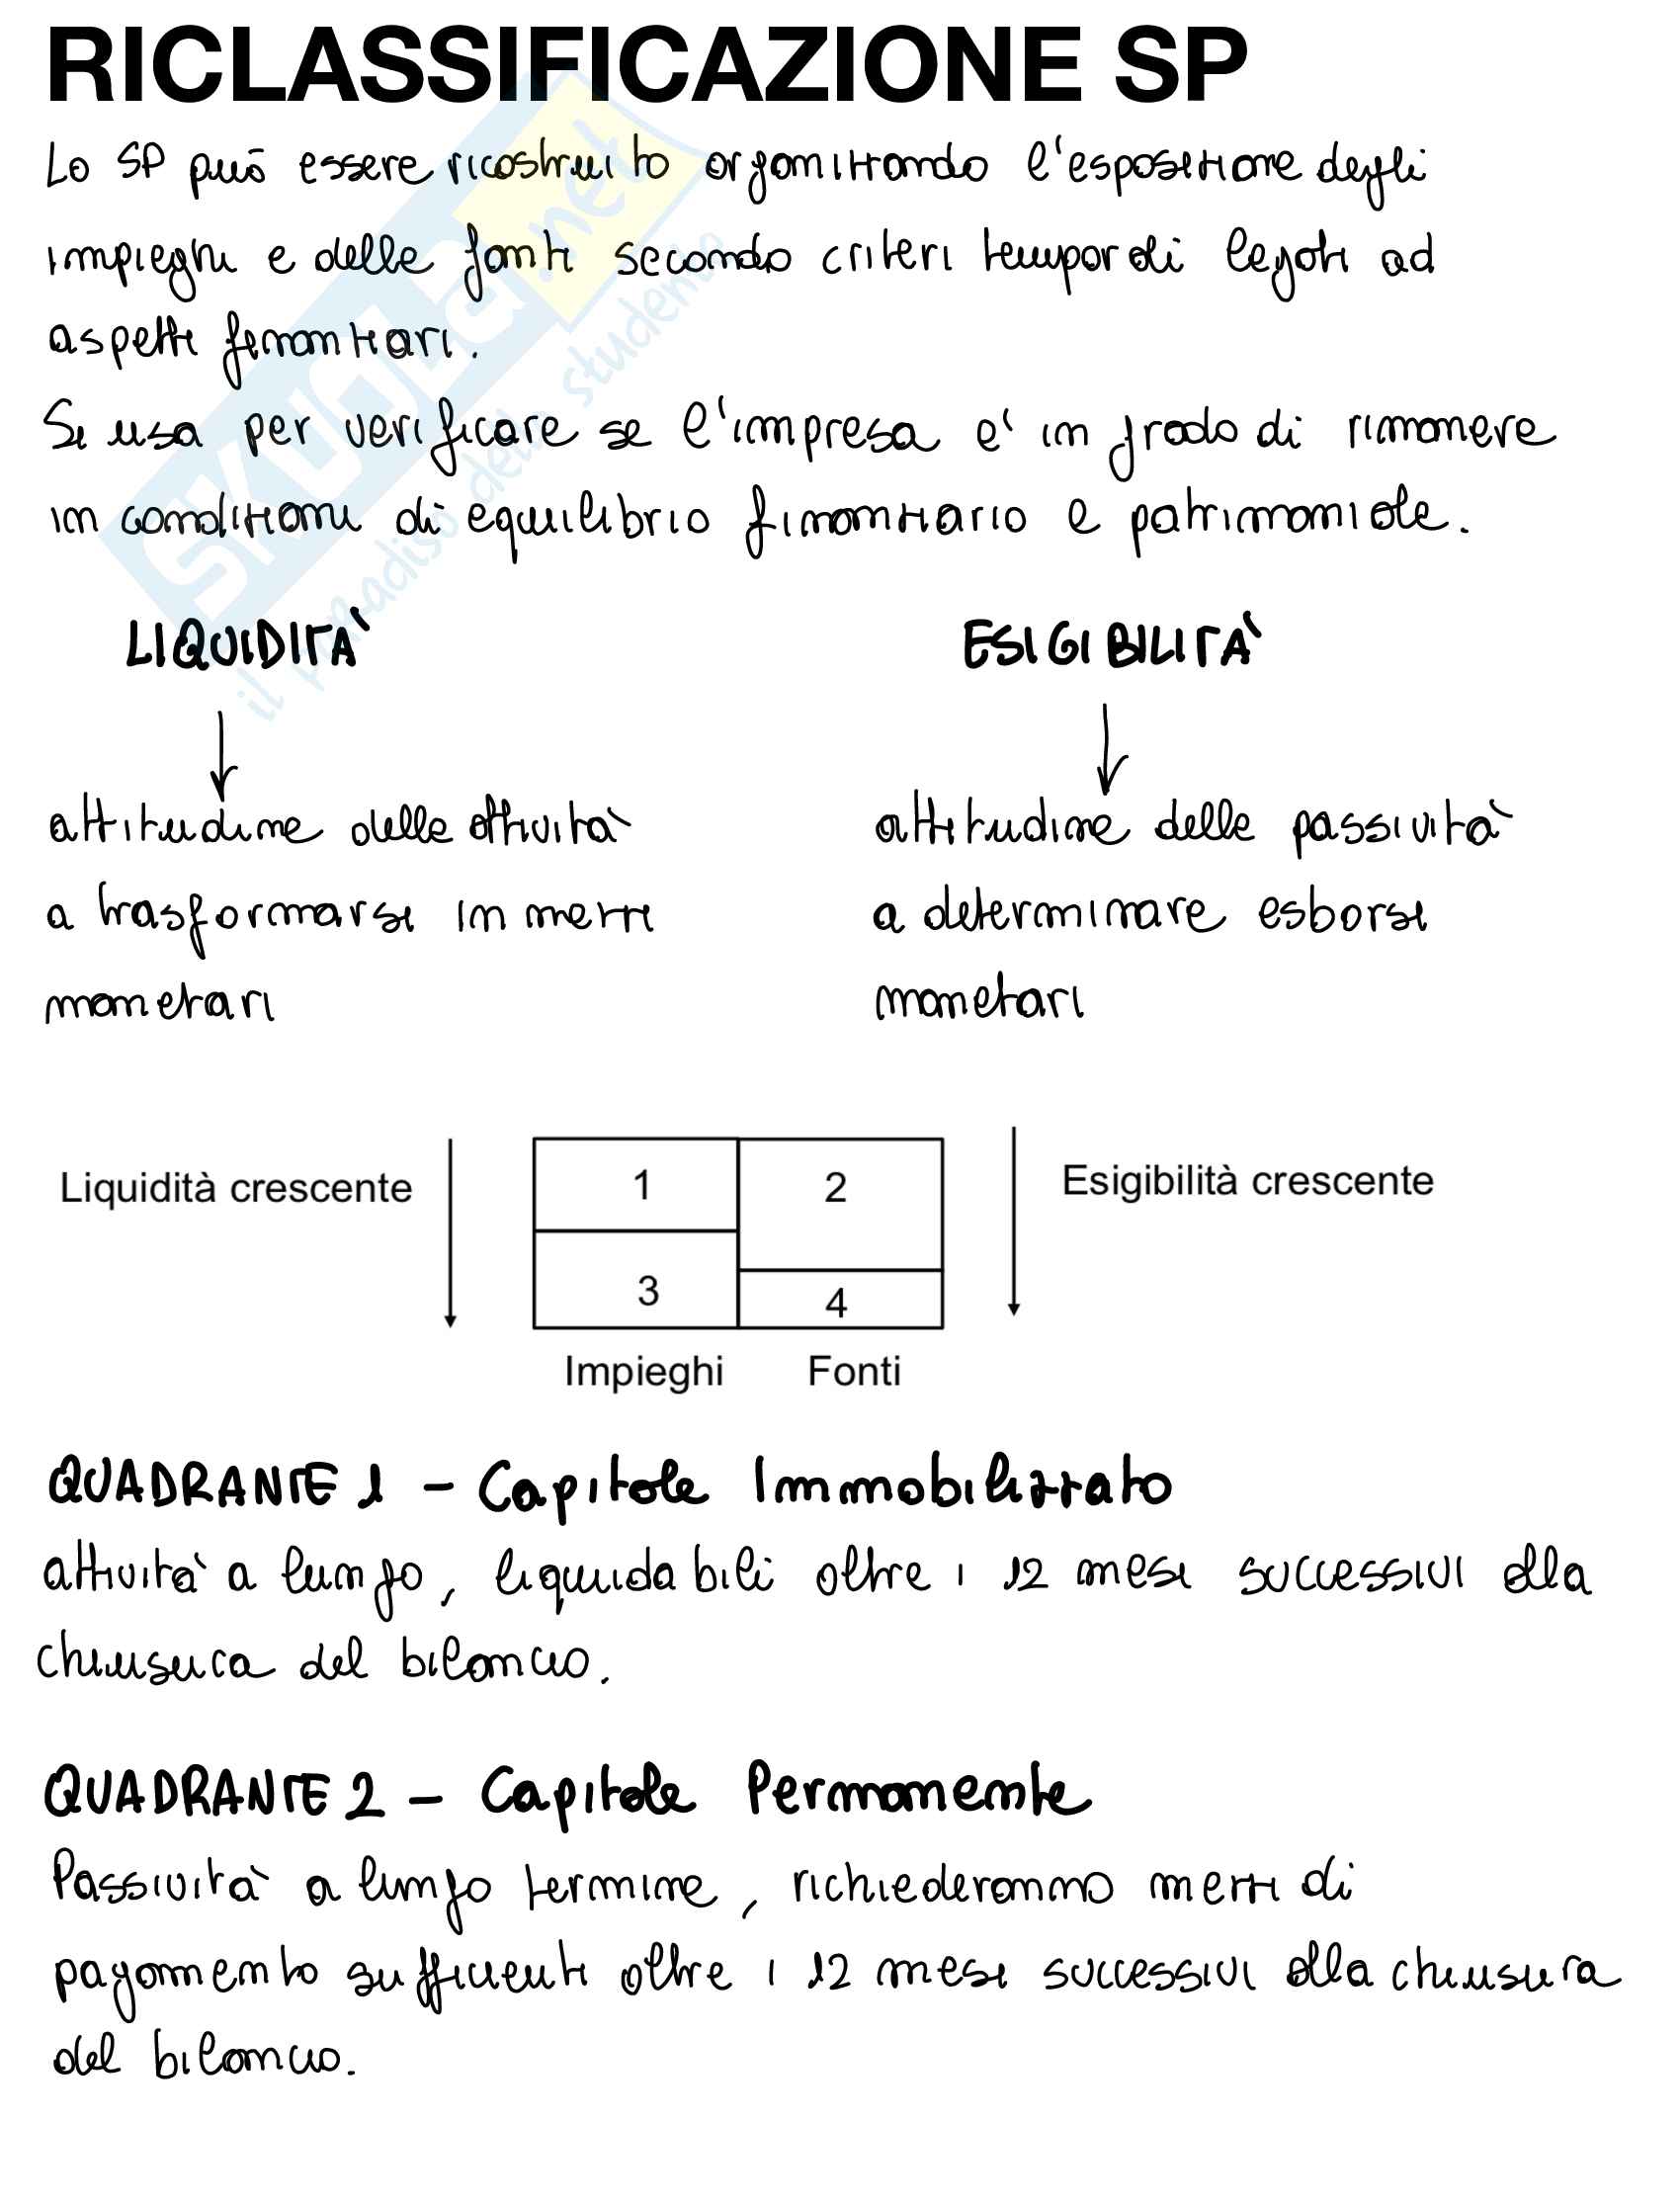 RICLASSIFICAZIONE SP
Lo SP può essere ricostruito organizzando l'esposizione degli
impieghi e delle fonti secondo criteri temporali legati ad
aspetti finanziari.
Si usa per verificare se l'impresa e' in grado di rimanere
in condizioni di equilibrio finanziario e patrimoniale.
SKUOLA.net
il paradiso dello studente
LIQUIDITÀ
ESIGIBILITÀ
attitudine delle attività
a trasformarsi in mezzi
monetari
attitudine delle passività
a determinare esborsi
monetari
Liquidità crescente
1
2
Esigibilità crescente
3
4
Impieghi
Fonti
QUADRANTE 1 - Capitale Immobilizzato
attività a lungo, liquidabili oltre i 12 mesi successivi alla
chiusura del bilancio.
QUADRANTE 2 - Capitale Permanente
Passività a lungo termine, richiederanno mezzi di
pagamento sufficienti oltre i 12 mesi successivi alla chiusura
del bilancio.